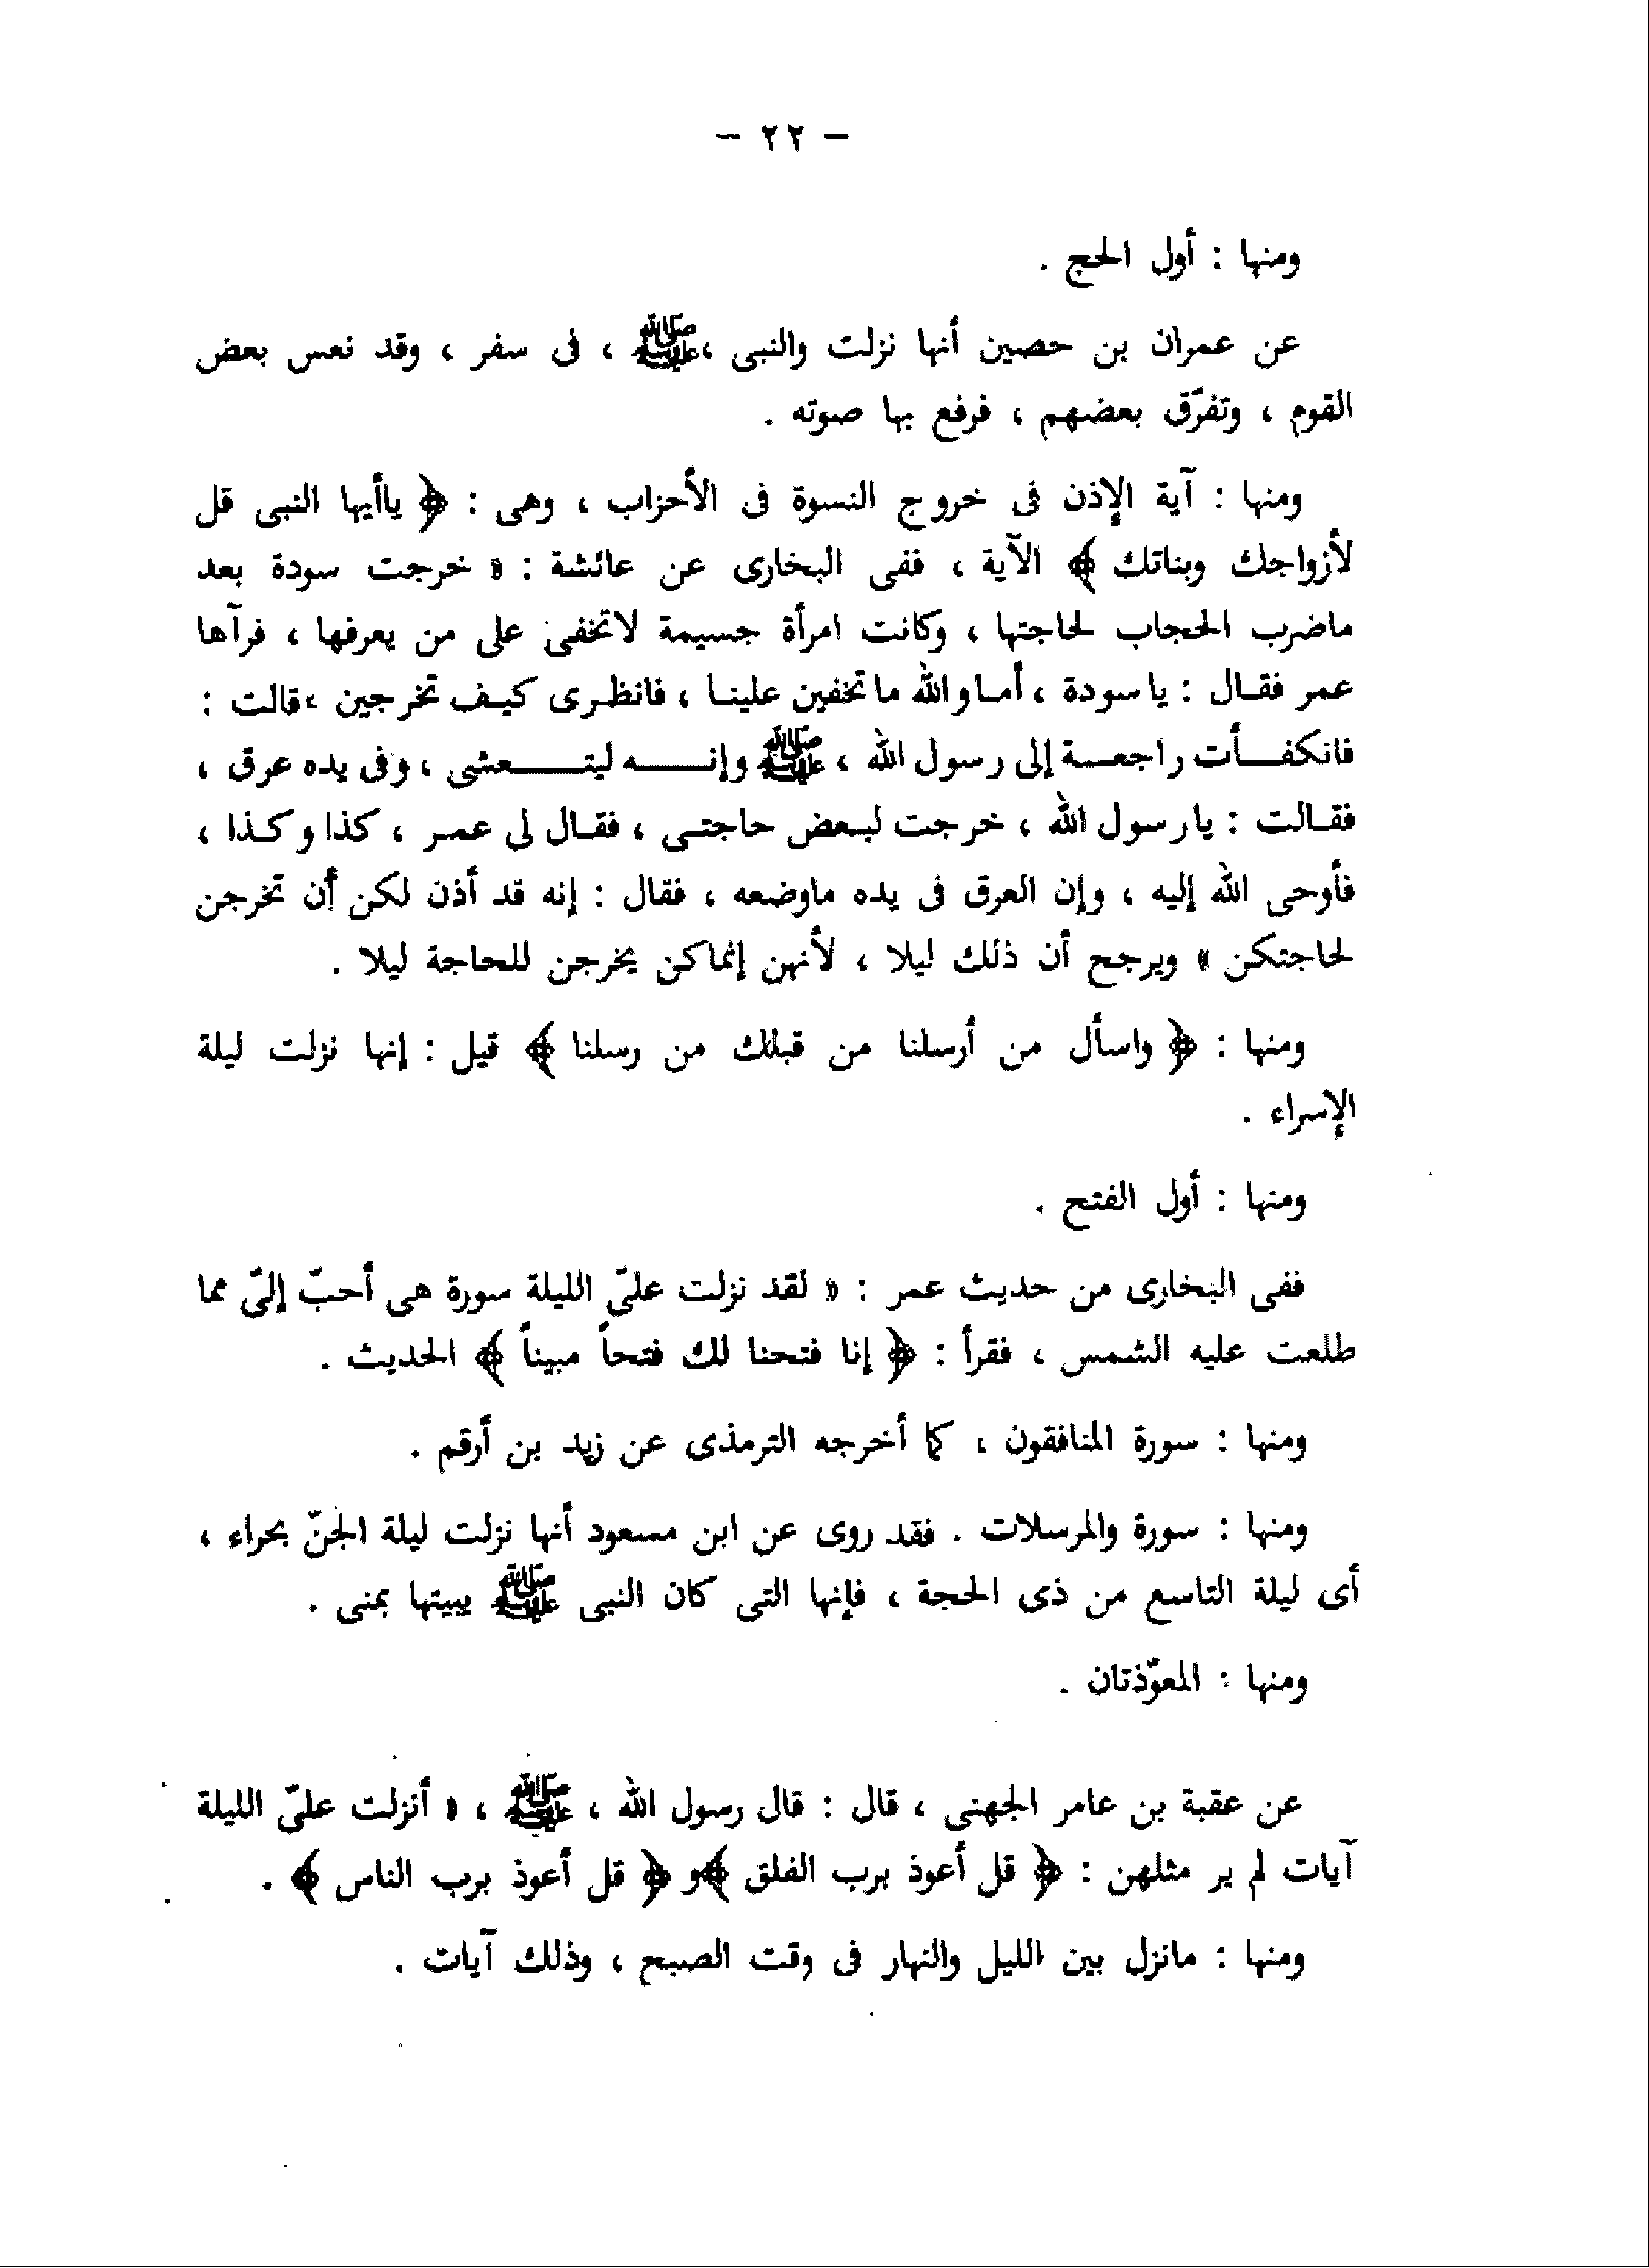 – ٢٢ –
ومنها : أول الحج .
عن عمران بن حصين أنها نزلت والنبى ، ﷺ ، فى سفر ، وقد نعس بعض
القوم ، وتفرّق بعضهم ، فرفع بها صوته .
ومنها : آية الإذن فى خروج النسوة فى الأحزاب ، وهى : ﴿ ياأيها النبى قل
لأزواجك وبناتك ﴾ الآية ، ففى البخارى عن عائشة : « خرجت سودة بعد
ماضرب الحجاب لحاجتها ، وكانت امرأة جسيمة لاتخفى على من يعرفها ، فرآها
عمر فقال : يا سودة ، أما والله ما تخفين علينا ، فانظرى كيف تخرجين ، قالت :
فانكفأت راجعة إلى رسول الله ، ﷺ وإنه ليتعشى ، وفى يده عرق ،
فقالت : يا رسول الله ، خرجت لبعض حاجتى ، فقال لى عمر ، كذا وكذا ،
فأوحى الله إليه ، وإن العرق فى يده ماوضعه ، فقال : إنه قد أذن لكن أن تخرجن
لحاجتكن » ويرجح أن ذلك ليلا ، لأنهن إنماكن يخرجن للحاجة ليلا .
ومنها : ﴿ واسأل من أرسلنا من قبلك من رسلنا ﴾ قيل : إنها نزلت ليلة
الإسراء .
ومنها : أول الفتح .
ففى البخارى من حديث عمر : « لقد نزلت علىّ الليلة سورة هى أحبّ إلىّ مما
طلعت عليه الشمس ، فقرأ : ﴿ إنا فتحنا لك فتحاً مبيناً ﴾ الحديث .
ومنها : سورة المنافقون ، كما أخرجه الترمذى عن زيد بن أرقم .
ومنها : سورة والمرسلات . فقد روى عن ابن مسعود أنها نزلت ليلة الجنّ بحراء ،
أى ليلة التاسع من ذى الحجة ، فإنها التى كان النبى ﷺ يبيتها بمنى .
ومنها : المعوّذتان .
عن عقبة بن عامر الجهنى ، قال : قال رسول الله ، ﷺ ، « أنزلت علىّ الليلة
آيات لم ير مثلهن : ﴿ قل أعوذ برب الفلق ﴾و ﴿ قل أعوذ برب الناس ﴾ .
ومنها : مانزل بين الليل والنهار فى وقت الصبح ، وذلك آيات .